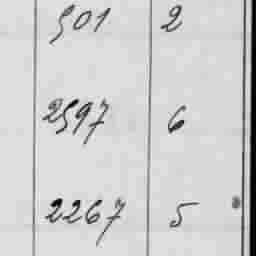 501 2
2597 6
2267 5